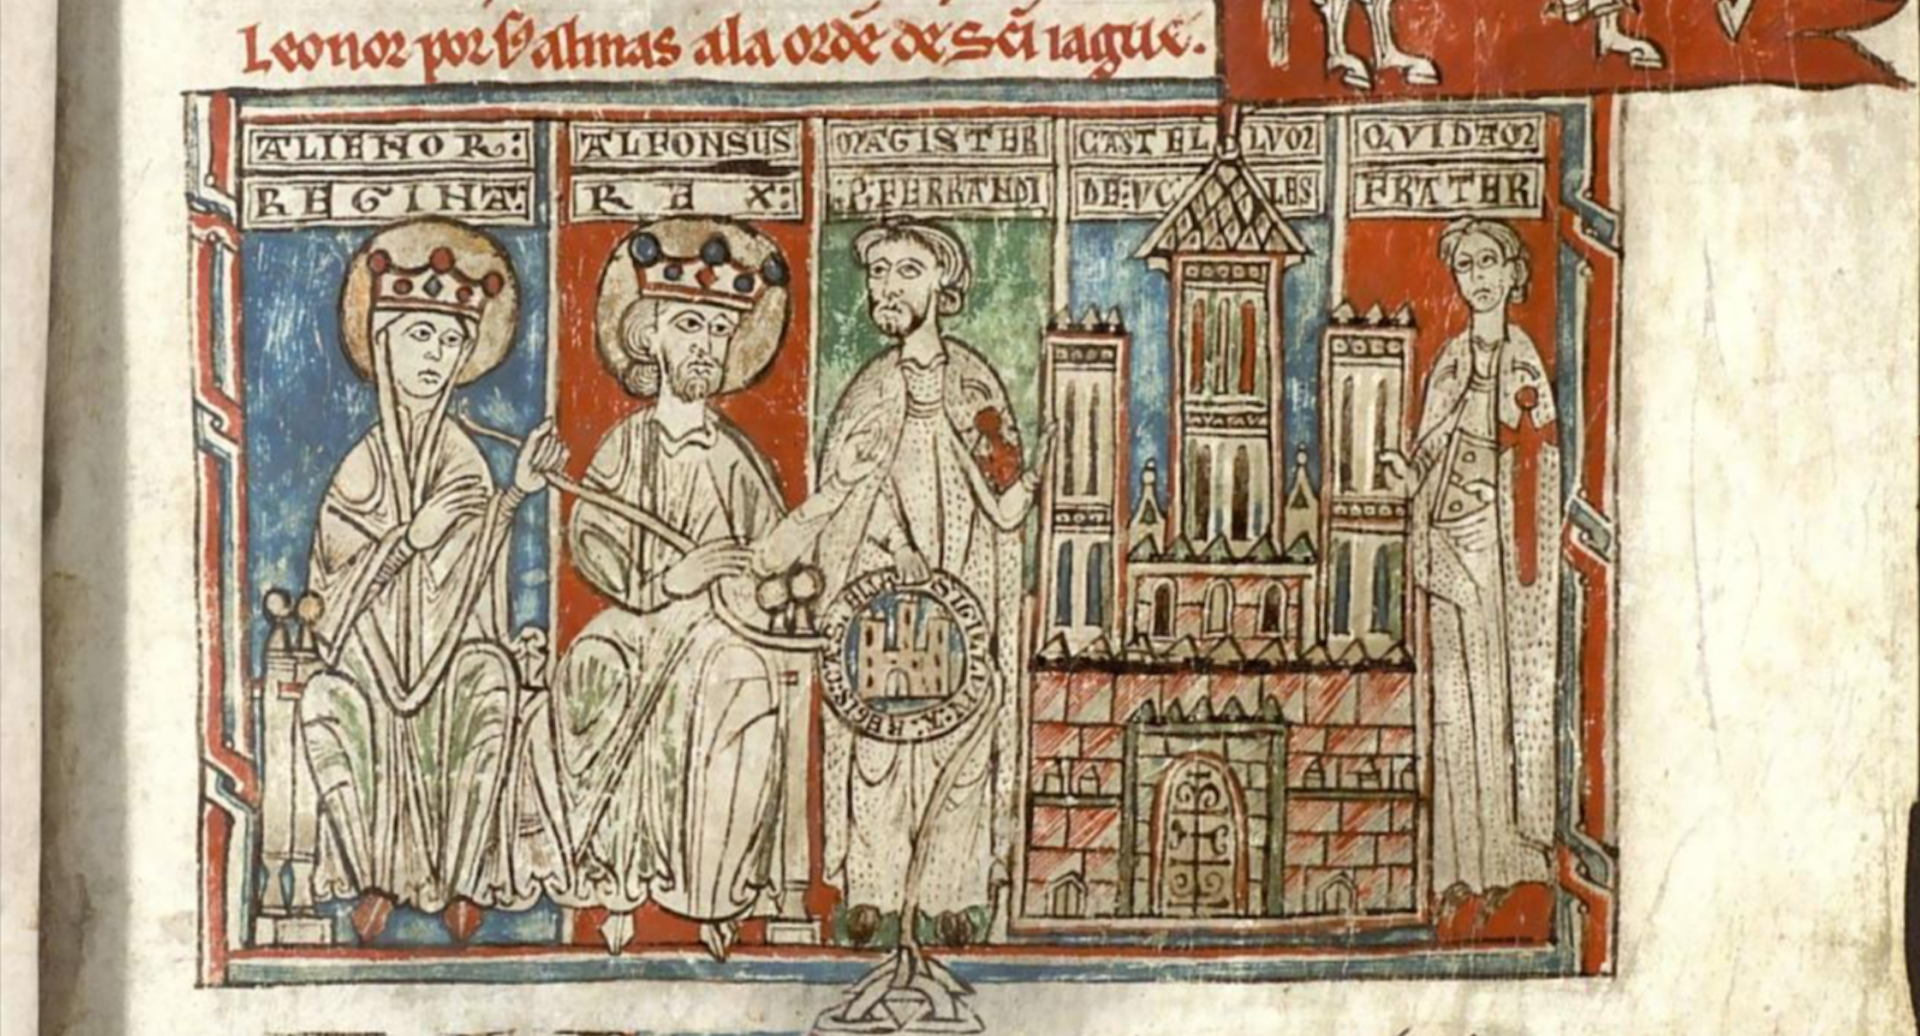 Leonor por sᵒ almas ala ordē de Sc̄i iague.
ALIENOR:
REGINA:
ALFONSUS
REX:
MAGISTER
:P:FERRANDI
CASTEL LVM
DE:VC LES
QVIDAM
FRATER
SIGILLVM
REGIS